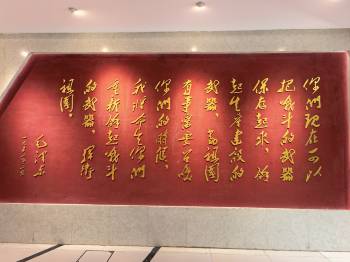 你們现在可以
把战斗的武器
保存起来，拿
起生产建設的
武器，当祖國
有事需要召喚
你們的時候，
我将命令你們
重新拿起战斗
的武器，捍衛
祖國。
毛泽东